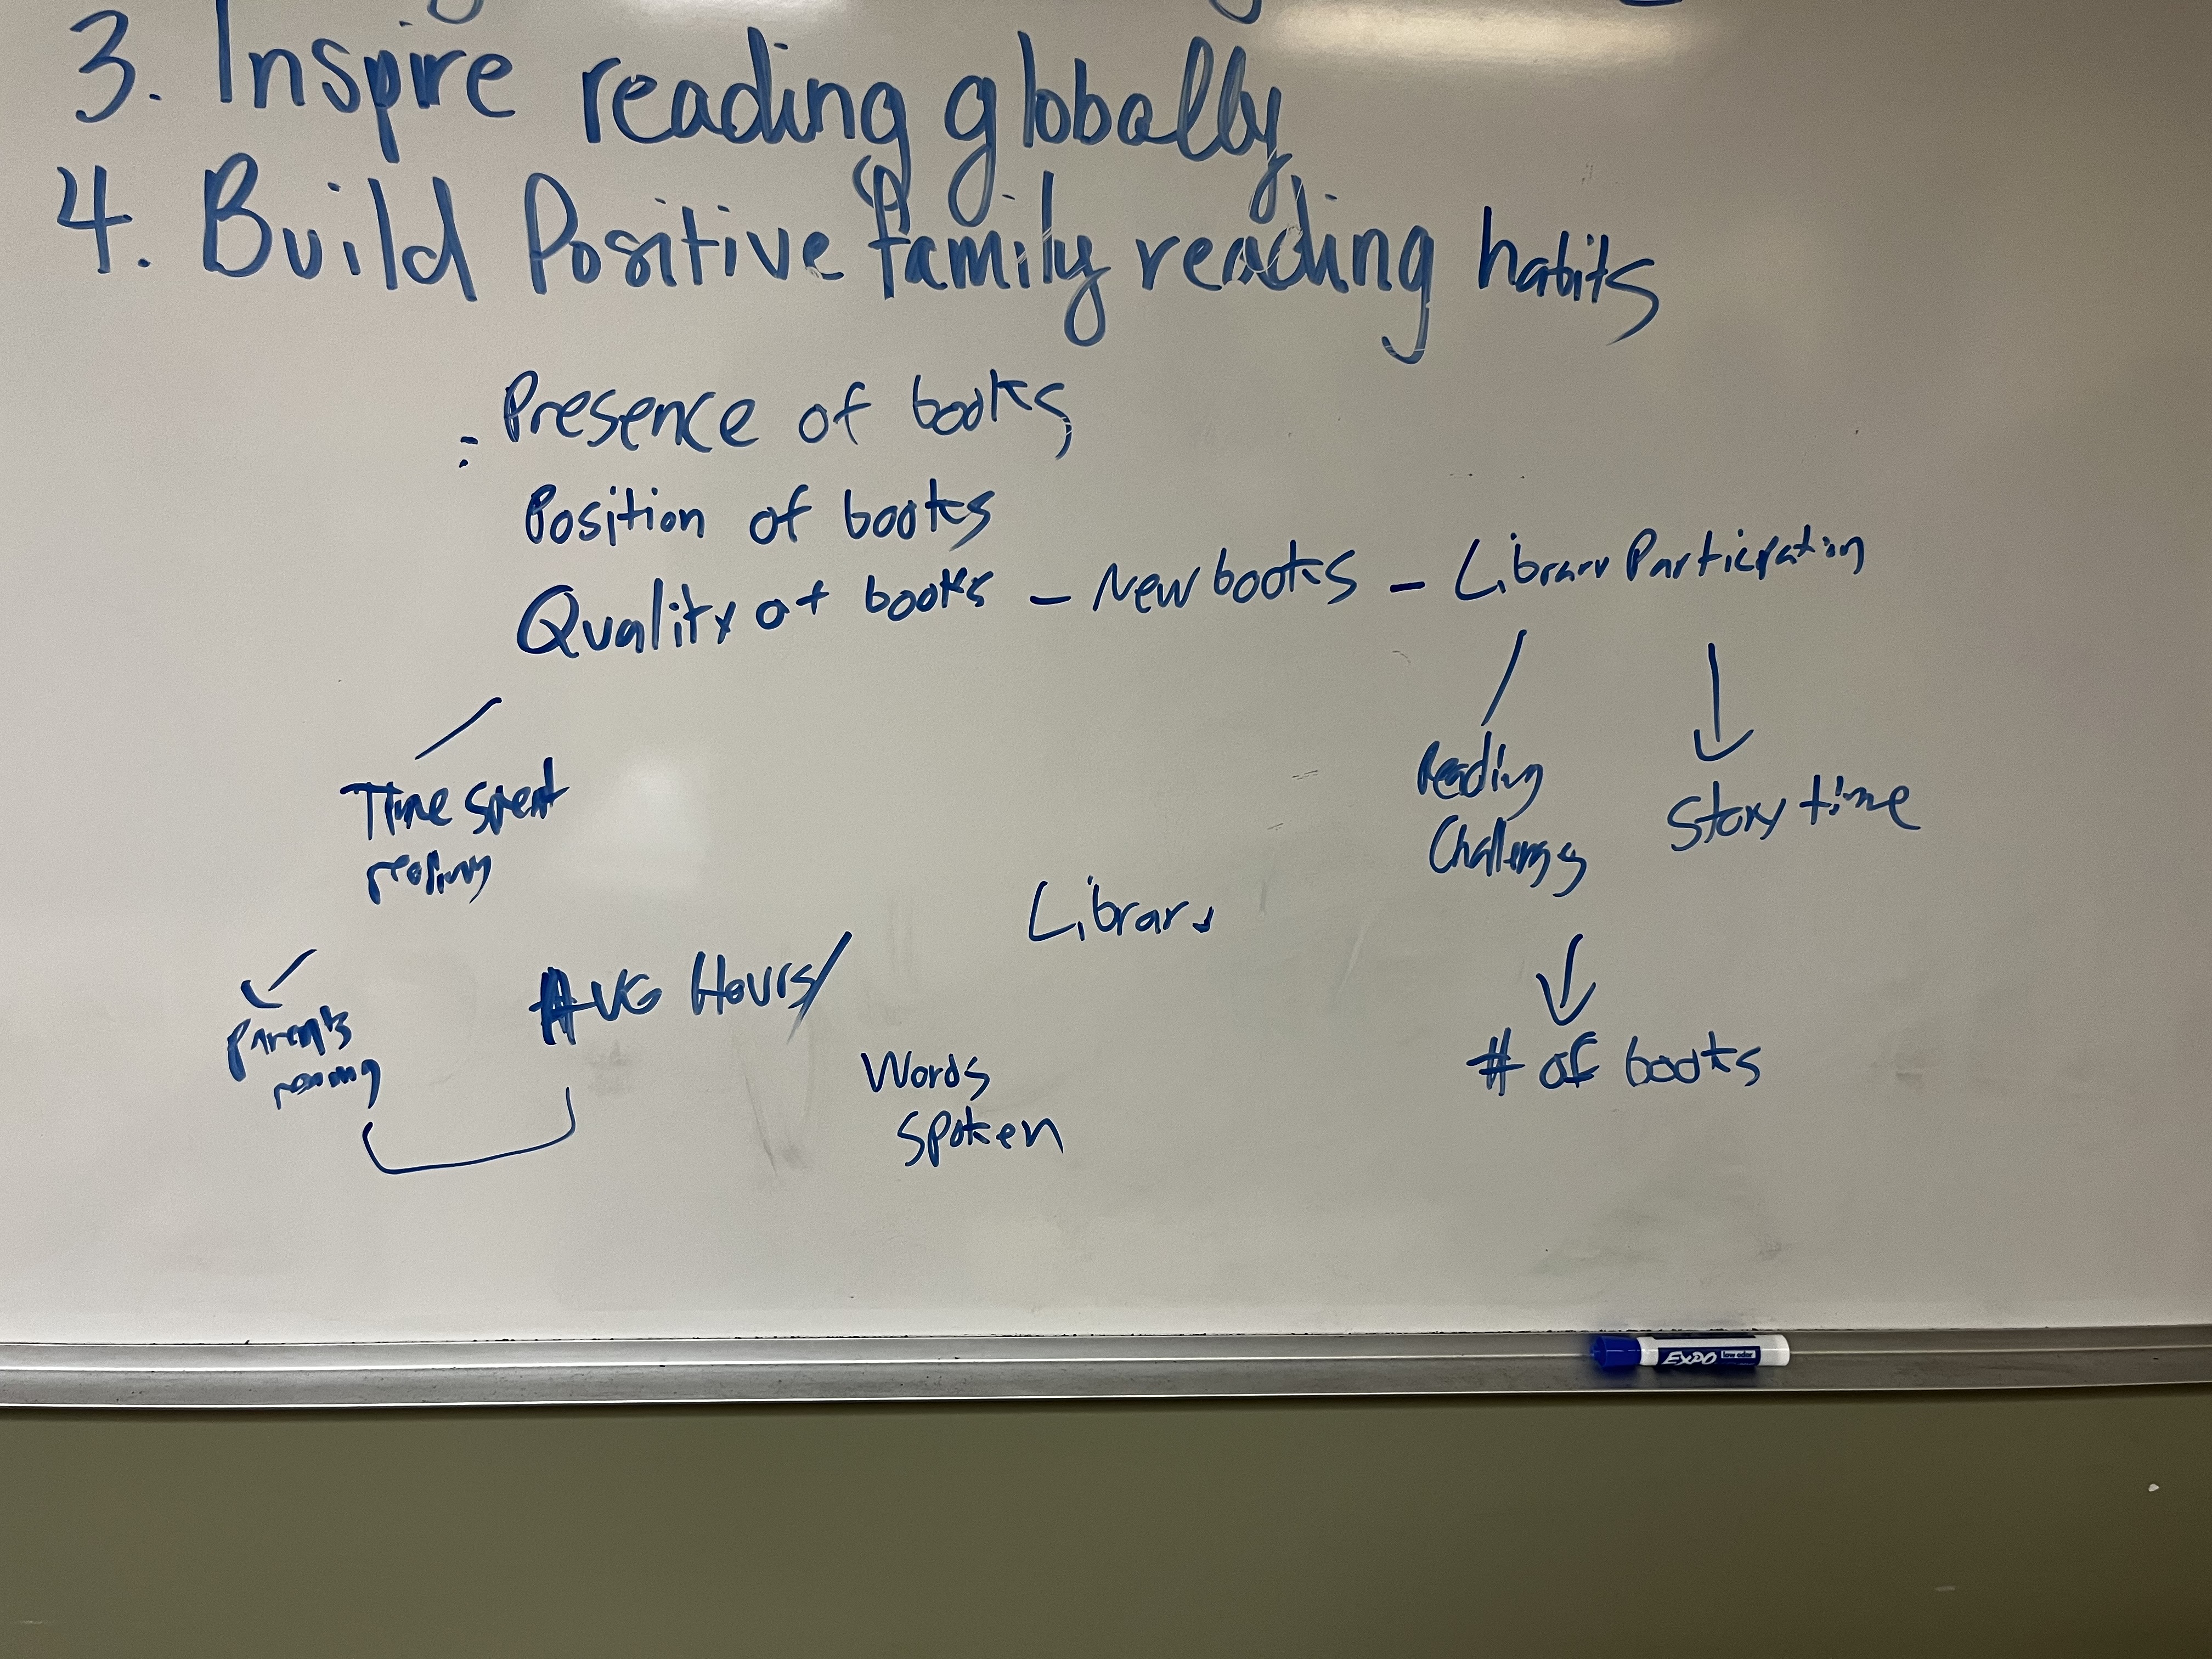 3. Inspire reading globally
4. Build Positive family reading habits
: Presence of books
Position of books
Quality of books - New books - Library Participation
Time spent
reading
Reading
Challenges
Story time
Library
AVG Hours/
parents
reading
Words
spoken
# of books
EXPO low odor